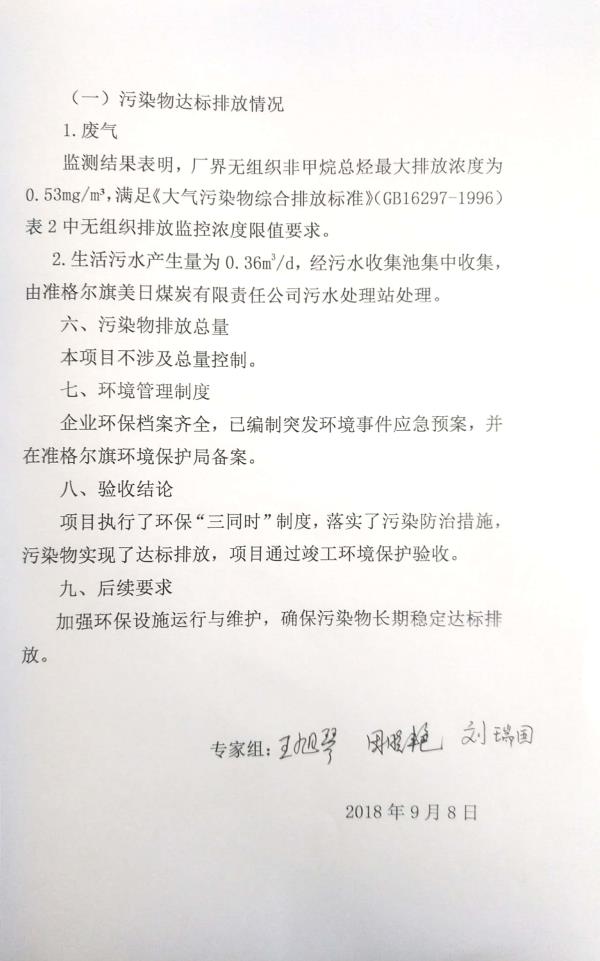 （一）污染物达标排放情况
1.废气
监测结果表明，厂界无组织非甲烷总烃最大排放浓度为
0.53mg/m³，满足《大气污染物综合排放标准》（GB16297-1996）
表 2 中无组织排放监控浓度限值要求。
2.生活污水产生量为 0.36m³/d，经污水收集池集中收集，
由准格尔旗美日煤炭有限责任公司污水处理站处理。
六、污染物排放总量
本项目不涉及总量控制。
七、环境管理制度
企业环保档案齐全，已编制突发环境事件应急预案，并
在准格尔旗环境保护局备案。
八、验收结论
项目执行了环保“三同时”制度，落实了污染防治措施，
污染物实现了达标排放，项目通过竣工环境保护验收。
九、后续要求
加强环保设施运行与维护，确保污染物长期稳定达标排
放。
专家组：王旭琴 刘瑞国
2018 年 9 月 8 日